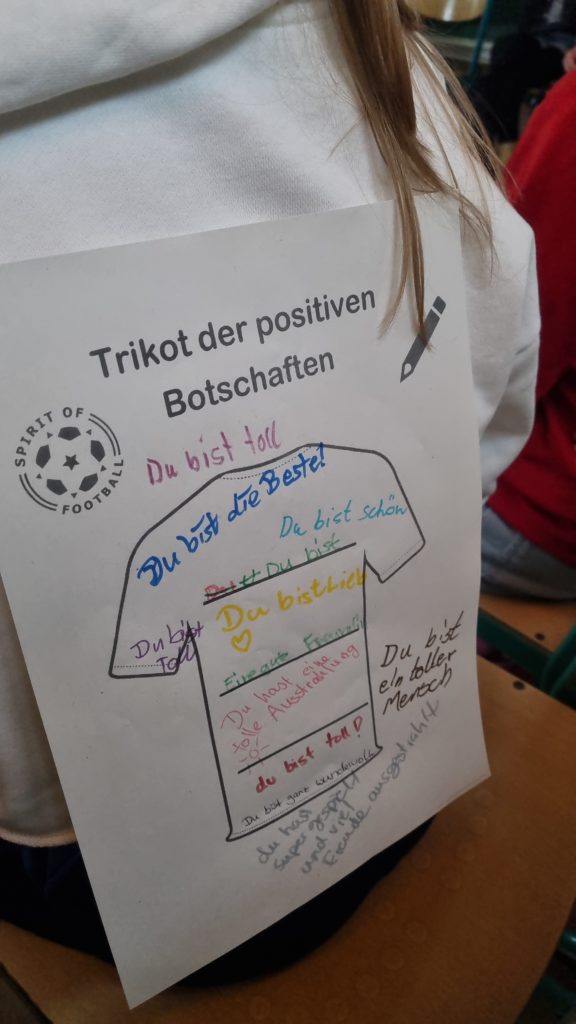 Trikot der positiven
Botschaften
SPIRIT OF
FOOTBALL
Du bist toll
Du bist die Beste!
Du bist schön
Du bist
Du bist Lieb
Du bist
Toll
Eine gute
Du hast eine
tolle Ausstrahlung
Du bist
ein toller
Mensch
du bist toll!
Du bist ganz wundervoll
du hast
super gespielt
und viel
Freude ausgestrahlt